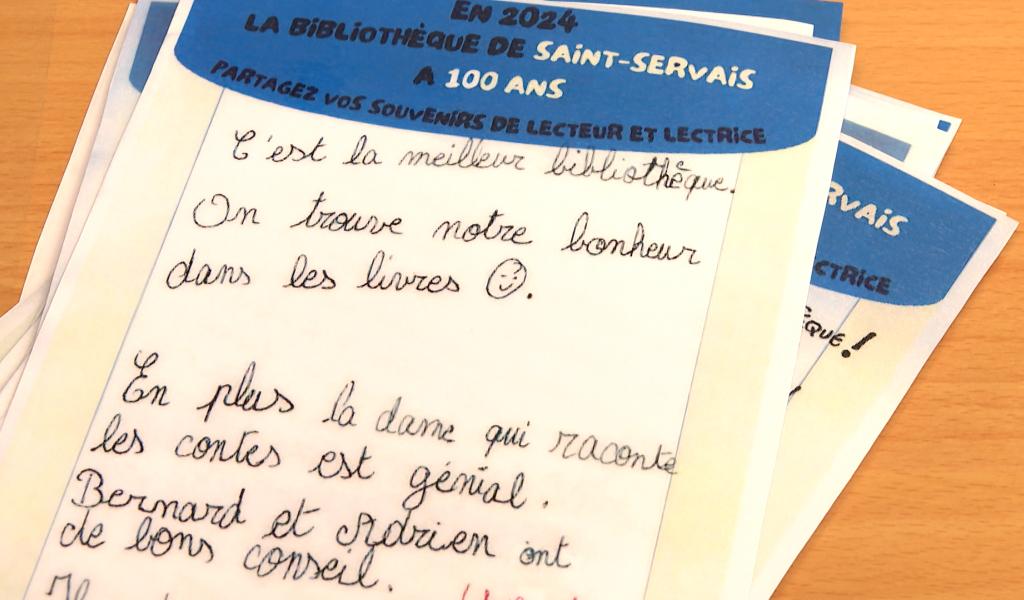 EN 2024
LA BIBLIOTHÈQUE DE SAINT-SERVAIS
A 100 ANS
PARTAGEZ VOS SOUVENIRS DE LECTEUR ET LECTRICE
C'est la meilleur bibliothèque.
On trouve notre bonheur
dans les livres ☺.
En plus la dame qui raconte
les contes est génial.
Bernard et Adrien ont
de bons conseil.
RVAIS
CTRICE
ÈQUE!